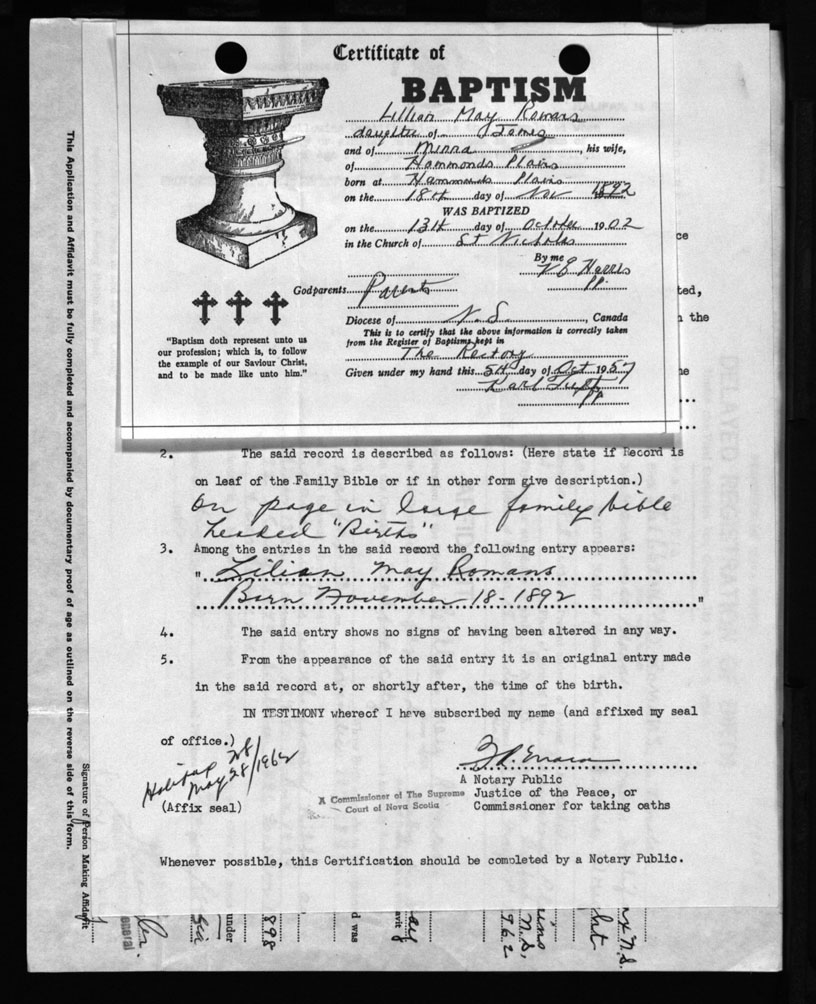 Certificate of
BAPTISM
Lillian May Romans
daughter of James
and of Minna, his wife,
of Hammonds Plains
born at Hammonds Plains
on the 18th day of Nov 1892
WAS BAPTIZED
on the 13th day of October 1902
in the Church of St Nicholas
By me
Harris
pp.
Godparents Parents
Diocese of N.S., Canada
This is to certify that the above information is correctly taken
from the Register of Baptisms kept in
The Rectory
Given under my hand this 5th day of Oct 1957
Karl Tufts
pp
"Baptism doth represent unto us
our profession; which is, to follow
the example of our Saviour Christ,
and to be made like unto him."
ce
ted,
the
2. The said record is described as follows: (Here state if Record is
on leaf of the Family Bible or if in other form give description.)
On page in large family bible
headed "Births"
3. Among the entries in the said record the following entry appears:
" Lilian May Romans
Born November 18-1892 "
4. The said entry shows no signs of having been altered in any way.
5. From the appearance of the said entry it is an original entry made
in the said record at, or shortly after, the time of the birth.
IN TESTIMONY whereof I have subscribed my name (and affixed my seal
of office.)
Halifax NS
May 28/1962
(Affix seal)
A Commissioner of The Supreme
Court of Nova Scotia
A Notary Public
Justice of the Peace, or
Commissioner for taking oaths
Whenever possible, this Certification should be completed by a Notary Public.
This Application and Affidavit must be fully completed and accompanied by documentary proof of age as outlined on the reverse side of this form.
Signature of Person Making Affidavit
eneral
under
898
d was
avit
N.S,
962
N.S.